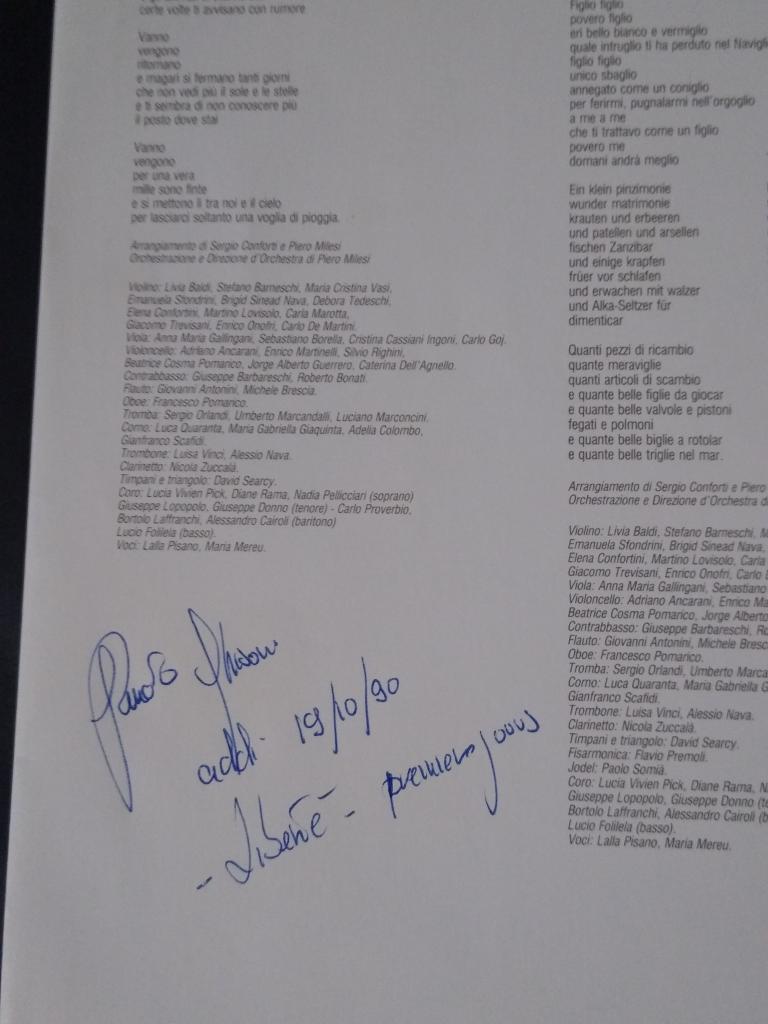 certe volte ti avvisano con rumore
Vanno
vengono
ritornano
e magari si fermano tanti giorni
che non vedi più il sole e le stelle
e ti sembra di non conoscere più
il posto dove stai
Vanno
vengono
per una vera
mille sono finte
e si mettono lì tra noi e il cielo
per lasciarci soltanto una voglia di pioggia.
Arrangiamento di Sergio Conforti e Piero Milesi
Orchestrazione e Direzione d'Orchestra di Piero Milesi
Violino: Livia Baldi, Stefano Barneschi, Maria Cristina Vasi,
Emanuela Sfondrini, Brigid Sinead Nava, Debora Tedeschi,
Elena Confortini, Martino Lovisolo, Carla Marotta,
Giacomo Trevisani, Enrico Onofri, Carlo De Martini.
Viola: Anna Maria Gallingani, Sebastiano Borella, Cristina Cassiani Ingoni, Carlo Goj.
Violoncello: Adriano Ancarani, Enrico Martinelli, Silvio Righini,
Beatrice Cosma Pomarico, Jorge Alberto Guerrero, Caterina Dell'Agnello.
Contrabbasso: Giuseppe Barbareschi, Roberto Bonati.
Flauto: Giovanni Antonini, Michele Brescia.
Oboe: Francesco Pomarico.
Tromba: Sergio Orlandi, Umberto Marcandalli, Luciano Marconcini.
Corno: Luca Quaranta, Maria Gabriella Giaquinta, Adelia Colombo,
Gianfranco Scafidi.
Trombone: Luisa Vinci, Alessio Nava.
Clarinetto: Nicola Zuccalà.
Timpani e triangolo: David Searcy.
Coro: Lucia Vivien Pick, Diane Rama, Nadia Pellicciari (soprano)
Giuseppe Lopopolo, Giuseppe Donno (tenore) - Carlo Proverbio,
Bortolo Laffranchi, Alessandro Cairoli (baritono)
Lucio Folilela (basso).
Voci: Lalla Pisano, Maria Mereu.
addì 19/10/90
Figlio figlio
povero figlio
eri bello bianco e vermiglio
quale intruglio ti ha perduto nel Naviglio
figlio figlio
unico sbaglio
annegato come un coniglio
per ferirmi, pugnalarmi nell'orgoglio
a me a me
che ti trattavo come un figlio
povero me
domani andrà meglio
Ein klein pinzimonie
wunder matrimonie
krauten und erbeeren
und patellen und arsellen
fischen Zanzibar
und einige krapfen
früer vor schlafen
und erwachen mit walzer
und Alka-Seltzer für
dimenticar
Quanti pezzi di ricambio
quante meraviglie
quanti articoli di scambio
e quante belle figlie da giocar
e quante belle valvole e pistoni
fegati e polmoni
e quante belle biglie a rotolar
e quante belle triglie nel mar.
Arrangiamento di Sergio Conforti e Piero
Orchestrazione e Direzione d'Orchestra di
Violino: Livia Baldi, Stefano Barneschi, M
Emanuela Sfondrini, Brigid Sinead Nava,
Elena Confortini, Martino Lovisolo, Carla
Giacomo Trevisani, Enrico Onofri, Carlo
Viola: Anna Maria Gallingani, Sebastiano
Violoncello: Adriano Ancarani, Enrico Ma
Beatrice Cosma Pomarico, Jorge Alberto
Contrabbasso: Giuseppe Barbareschi, Ro
Flauto: Giovanni Antonini, Michele Bresc
Oboe: Francesco Pomarico.
Tromba: Sergio Orlandi, Umberto Marca
Corno: Luca Quaranta, Maria Gabriella G
Gianfranco Scafidi.
Trombone: Luisa Vinci, Alessio Nava.
Clarinetto: Nicola Zuccalà.
Timpani e triangolo: David Searcy.
Fisarmonica: Flavio Premoli.
Jodel: Paolo Somià.
Coro: Lucia Vivien Pick, Diane Rama, N
Giuseppe Lopopolo, Giuseppe Donno (te
Bortolo Laffranchi, Alessandro Cairoli (b
Lucio Folilela (basso).
Voci: Lalla Pisano, Maria Mereu.